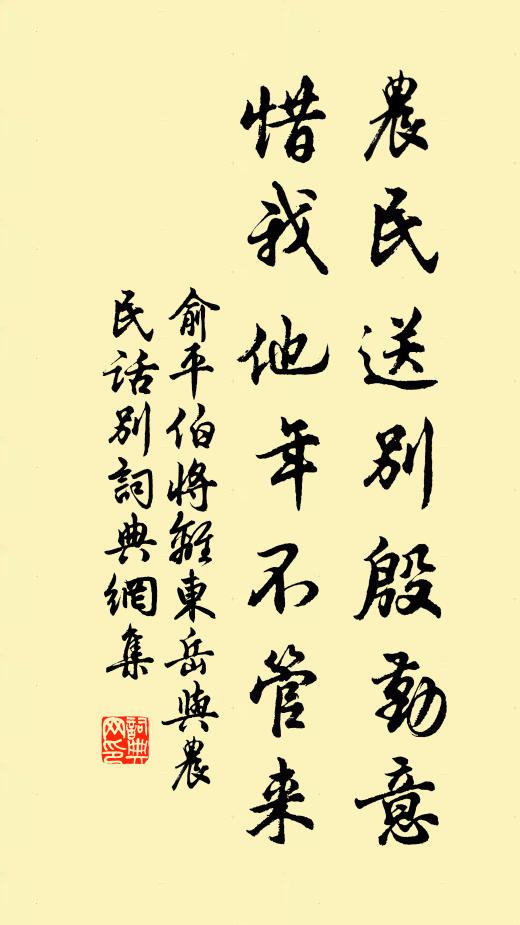 農民送别殷勤意
惜我他年不管来
俞平伯將離東岳與農
民話别詞典網集
詞典
网印